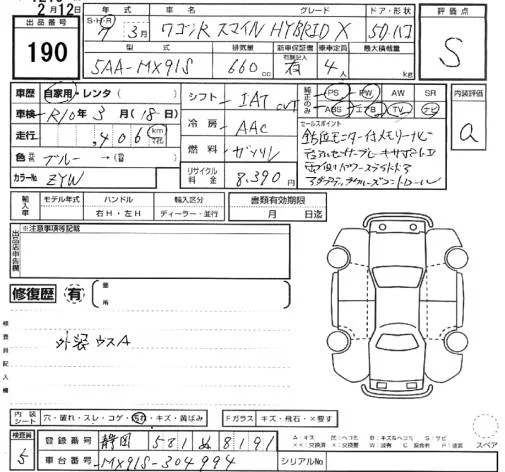 2月12日
出品番号
190
年式 車名 グレード ドア・形状
S・H・R 7 3月 ワゴンR スマイル HYBRID X 5D.バン
型式 排気量 新車保証書 乗車定員 最大積載量
5AA-MX91S 660 cc 有 4人 kg
評価点
S
車歴 自家用・レンタ ( )
車検 R10年3月(18日)
走行 406 km
色 ブルー→( )
カラーNo. ZYW
シフト IAT CVT
冷房 AAC
燃料 ガソリン
リサイクル料金 8,390円
純正のみ
PS PW AW SR
ABS エアB TV ナビ
セールスポイント
全方位モニター付メモリーナビ
デュアルセンサーブレーキサポートII
電動パワースライドドア
アダプティブクルーズコントロール
内装評価
a
輸入車 モデル年式 ハンドル 輸入区分 書類有効期限
右H・左H ディーラー・並行 月 日迄
出品店申告欄
※注意事項等記載
修復歴 有 箇所
検査員記入欄
外装 ウスA
内装シート 穴・破れ・スレ・コゲ・汚れ・キズ・黄ばみ Fガラス キズ・飛石・×要す
検査員 5
登録番号 静岡 581 ぬ 8191
車台番号 MX91S-304994 シリアルNo.
スペア